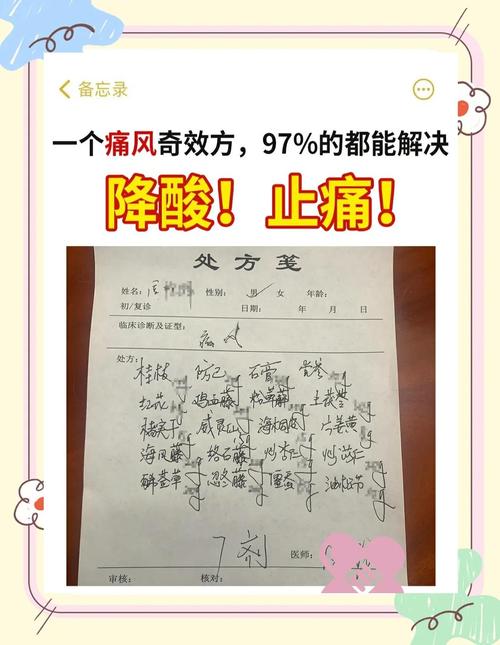 备忘录
一个痛风奇效方，97%的都能解决
降酸！止痛！
处方笺
姓名： 性别： 男 女 年龄：
初/复诊 日期： 年 月 日
临床诊断及证型： 痛风
处方：
桂枝 防己 石膏
红花 鸡血藤 土茯苓
威灵仙 海桐皮 片姜黄
海风藤 络石藤 炒杏仁 炒苡仁
忍冬藤 油松节
7剂
医师：
审核： 核对：